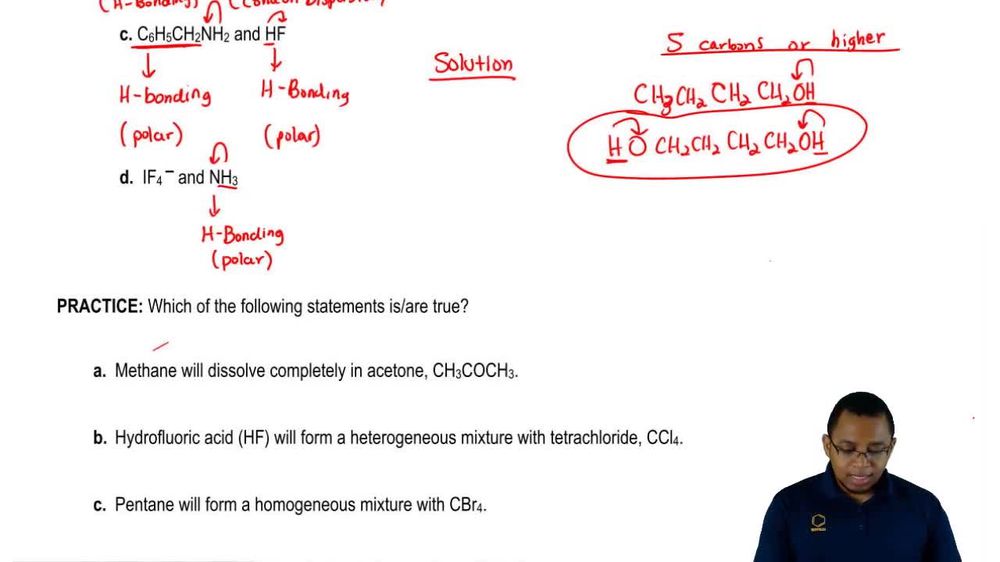 (H-Bonding)
c. C₆H₅CH₂NH₂ and HF
H-bonding
H-Bonding
(polar)
(polar)
d. IF₄⁻ and NH₃
H-Bonding
(polar)
Solution
5 carbons or higher
CH₃CH₂ CH₂ CH₂OH
HO CH₂CH₂ CH₂CH₂OH
PRACTICE: Which of the following statements is/are true?
a. Methane will dissolve completely in acetone, CH₃COCH₃.
b. Hydrofluoric acid (HF) will form a heterogeneous mixture with tetrachloride, CCl₄.
c. Pentane will form a homogeneous mixture with CBr₄.